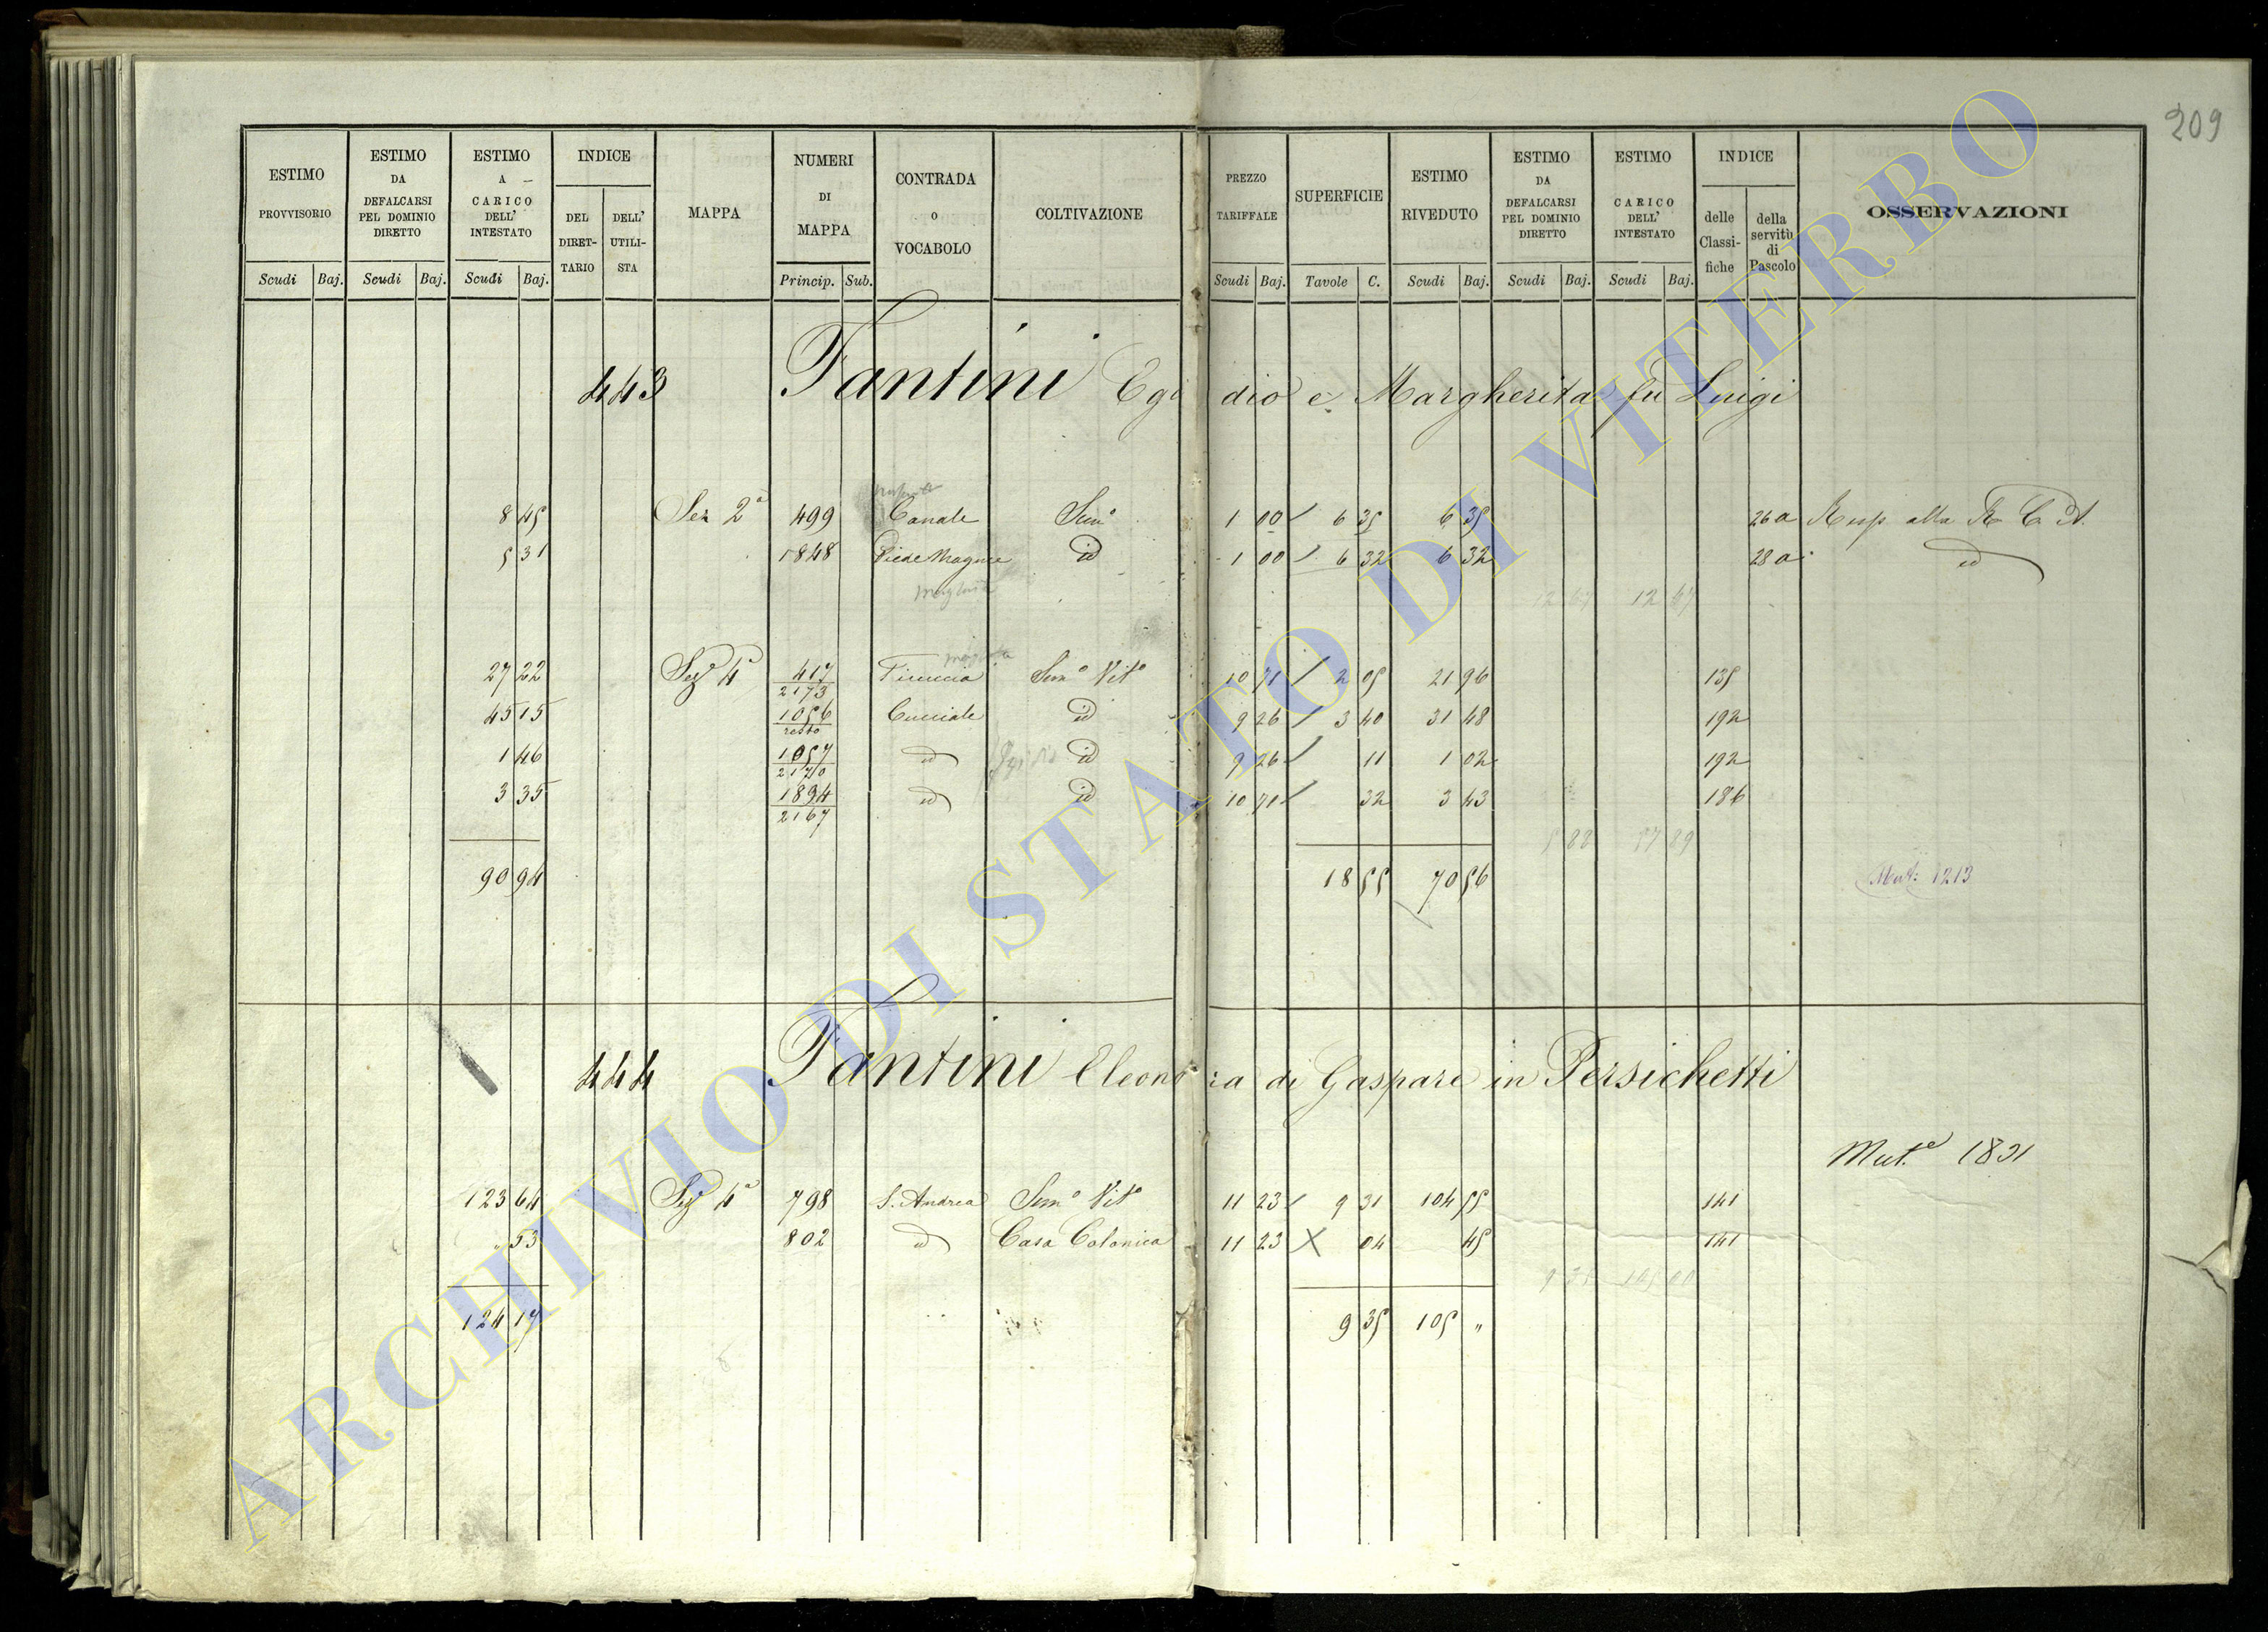 209
ESTIMO PROVVISORIO Scudi Baj.
ESTIMO DA DEFALCARSI PEL DOMINIO DIRETTO Scudi Baj.
ESTIMO A CARICO DELL' INTESTATO Scudi Baj.
INDICE DEL DIRETTARIO DELL' UTILISTA
MAPPA
NUMERI DI MAPPA Princip. Sub.
CONTRADA O VOCABOLO
COLTIVAZIONE
PREZZO TARIFFALE Scudi Baj.
SUPERFICIE Tavole C.
ESTIMO RIVEDUTO Scudi Baj.
ESTIMO DA DEFALCARSI PEL DOMINIO DIRETTO Scudi Baj.
ESTIMO CARICO DELL' INTESTATO Scudi Baj.
INDICE delle Classifiche della servitù di Pascolo
OSSERVAZIONI
443 Fantini Egidio e Margherita fu Luigi
8 45 Sez 2ª 499 Canale Semº 1 00 6 35 6 35 26 a Risp. alla R. C. A.
5 31 1848 id 1 00 6 32 6 32 28 a id
12 67 12 67
27 22 Sez 4ª 417/2173 Semº Vitº 10 71 2 05 21 96 135
45 15 1056/resto Cucciale id 9 26 3 40 31 48 192
1 46 1057/2170 id id 9 26 11 1 02 192
3 35 1894/2167 id id 10 71 32 3 43 186
5 88 57 89
90 94 18 55 70 56 Mut: 1213
444 Fantini Eleonora di Gaspare in Persichetti
Mut.e 1821
123 64 Sez 4ª 798 S. Andrea Semº Vitº 11 23 9 31 104 55 141
" 53 802 id Casa Colonica 11 23 X 04 45 141
9 35 105 00
124 17 9 35 105 "
ARCHIVIO DI STATO DI VITERBO